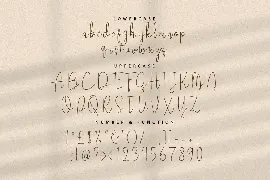 LOWERCASE
abcdefghijklmnop
qrstuvwxyz
UPPERCASE
ABCDEFGHIJKLMN
OPQRSTUVWXYZ
NUMBER & FUNCTION
1234567890